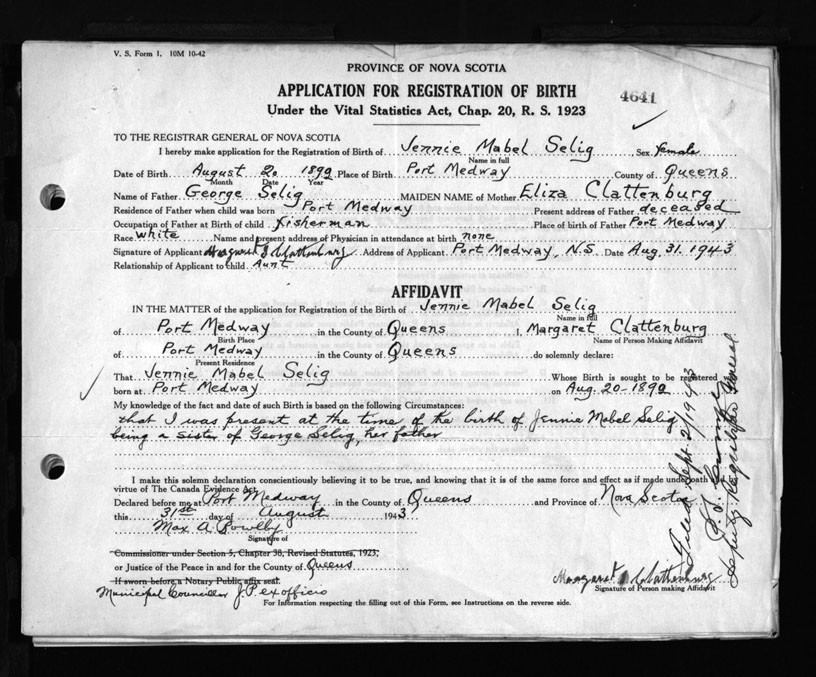 V. S. Form 1. 10M 10-42
PROVINCE OF NOVA SCOTIA
APPLICATION FOR REGISTRATION OF BIRTH
4641
Under the Vital Statistics Act, Chap. 20, R. S. 1923
TO THE REGISTRAR GENERAL OF NOVA SCOTIA
I hereby make application for the Registration of Birth of Jennie Mabel Selig Sex female
Name in full
Date of Birth August 20 1892 Place of Birth Port Medway County of Queens
Month Date Year
Name of Father George Selig MAIDEN NAME of Mother Eliza Clattenburg
Residence of Father when child was born Port Medway Present address of Father deceased
Occupation of Father at Birth of child Fisherman Place of birth of Father Port Medway
Race white Name and present address of Physician in attendance at birth none
Signature of Applicant Margaret Clattenburg Address of Applicant Port Medway, N.S. Date Aug. 31. 1943
Relationship of Applicant to child Aunt
AFFIDAVIT
IN THE MATTER of the application for Registration of the Birth of Jennie Mabel Selig
Name in full
of Port Medway in the County of Queens I, Margaret Clattenburg
Birth Place Name of Person Making Affidavit
of Port Medway in the County of Queens do solemnly declare:
Present Residence
That Jennie Mabel Selig Whose Birth is sought to be registered
born at Port Medway on Aug. 20 - 1892
My knowledge of the fact and date of such Birth is based on the following Circumstances:
that I was present at the time of the birth of Jennie Mabel Selig
being a sister of George Selig, her father
I make this solemn declaration conscientiously believing it to be true, and knowing that it is of the same force and effect as if made under oath by
virtue of The Canada Evidence Act
Declared before me at Port Medway in the County of Queens and Province of Nova Scotia
this 31st day of August 1943
Max A. Fowlby
Signature of
Commissioner under Section 5, Chapter 38, Revised Statutes, 1923,
or Justice of the Peace in and for the County of Queens
If sworn before a Notary Public affix seal
Municipal Councillor J.P. ex officio
Margaret Clattenburg
Signature of Person making Affidavit
For Information respecting the filling out of this Form, see Instructions on the reverse side.
Filed Sept. 2/1943
Deputy Registrar General